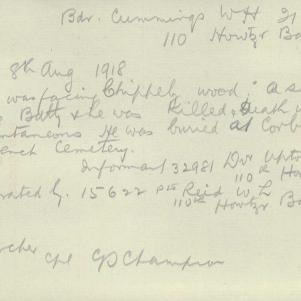 Bdr. Cummings W H 21
110 Howtzr Ba
8th Aug 1918
was facing Chipilly wood, a s
Batty & he was killed, death w
ntaneous He was buried at Corb
ench Cemetery.
Informant 32981 Dvr Upto
110th How
rated by. 15622 Pte Reid W L
110th Howtzr Ba
rcher Cpl CP Champion